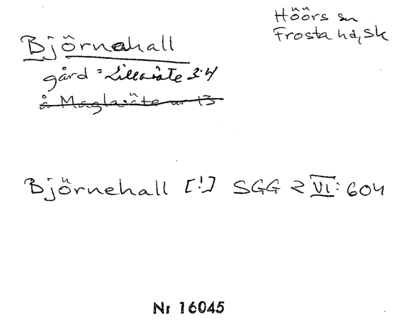 Höörs sn
Frosta hd, Sk
Björnehall
gård = Lillasäte 3:4
å Maglasäte nr 13
Björnehall [!] SGG 2 VI: 604
Nr 16045